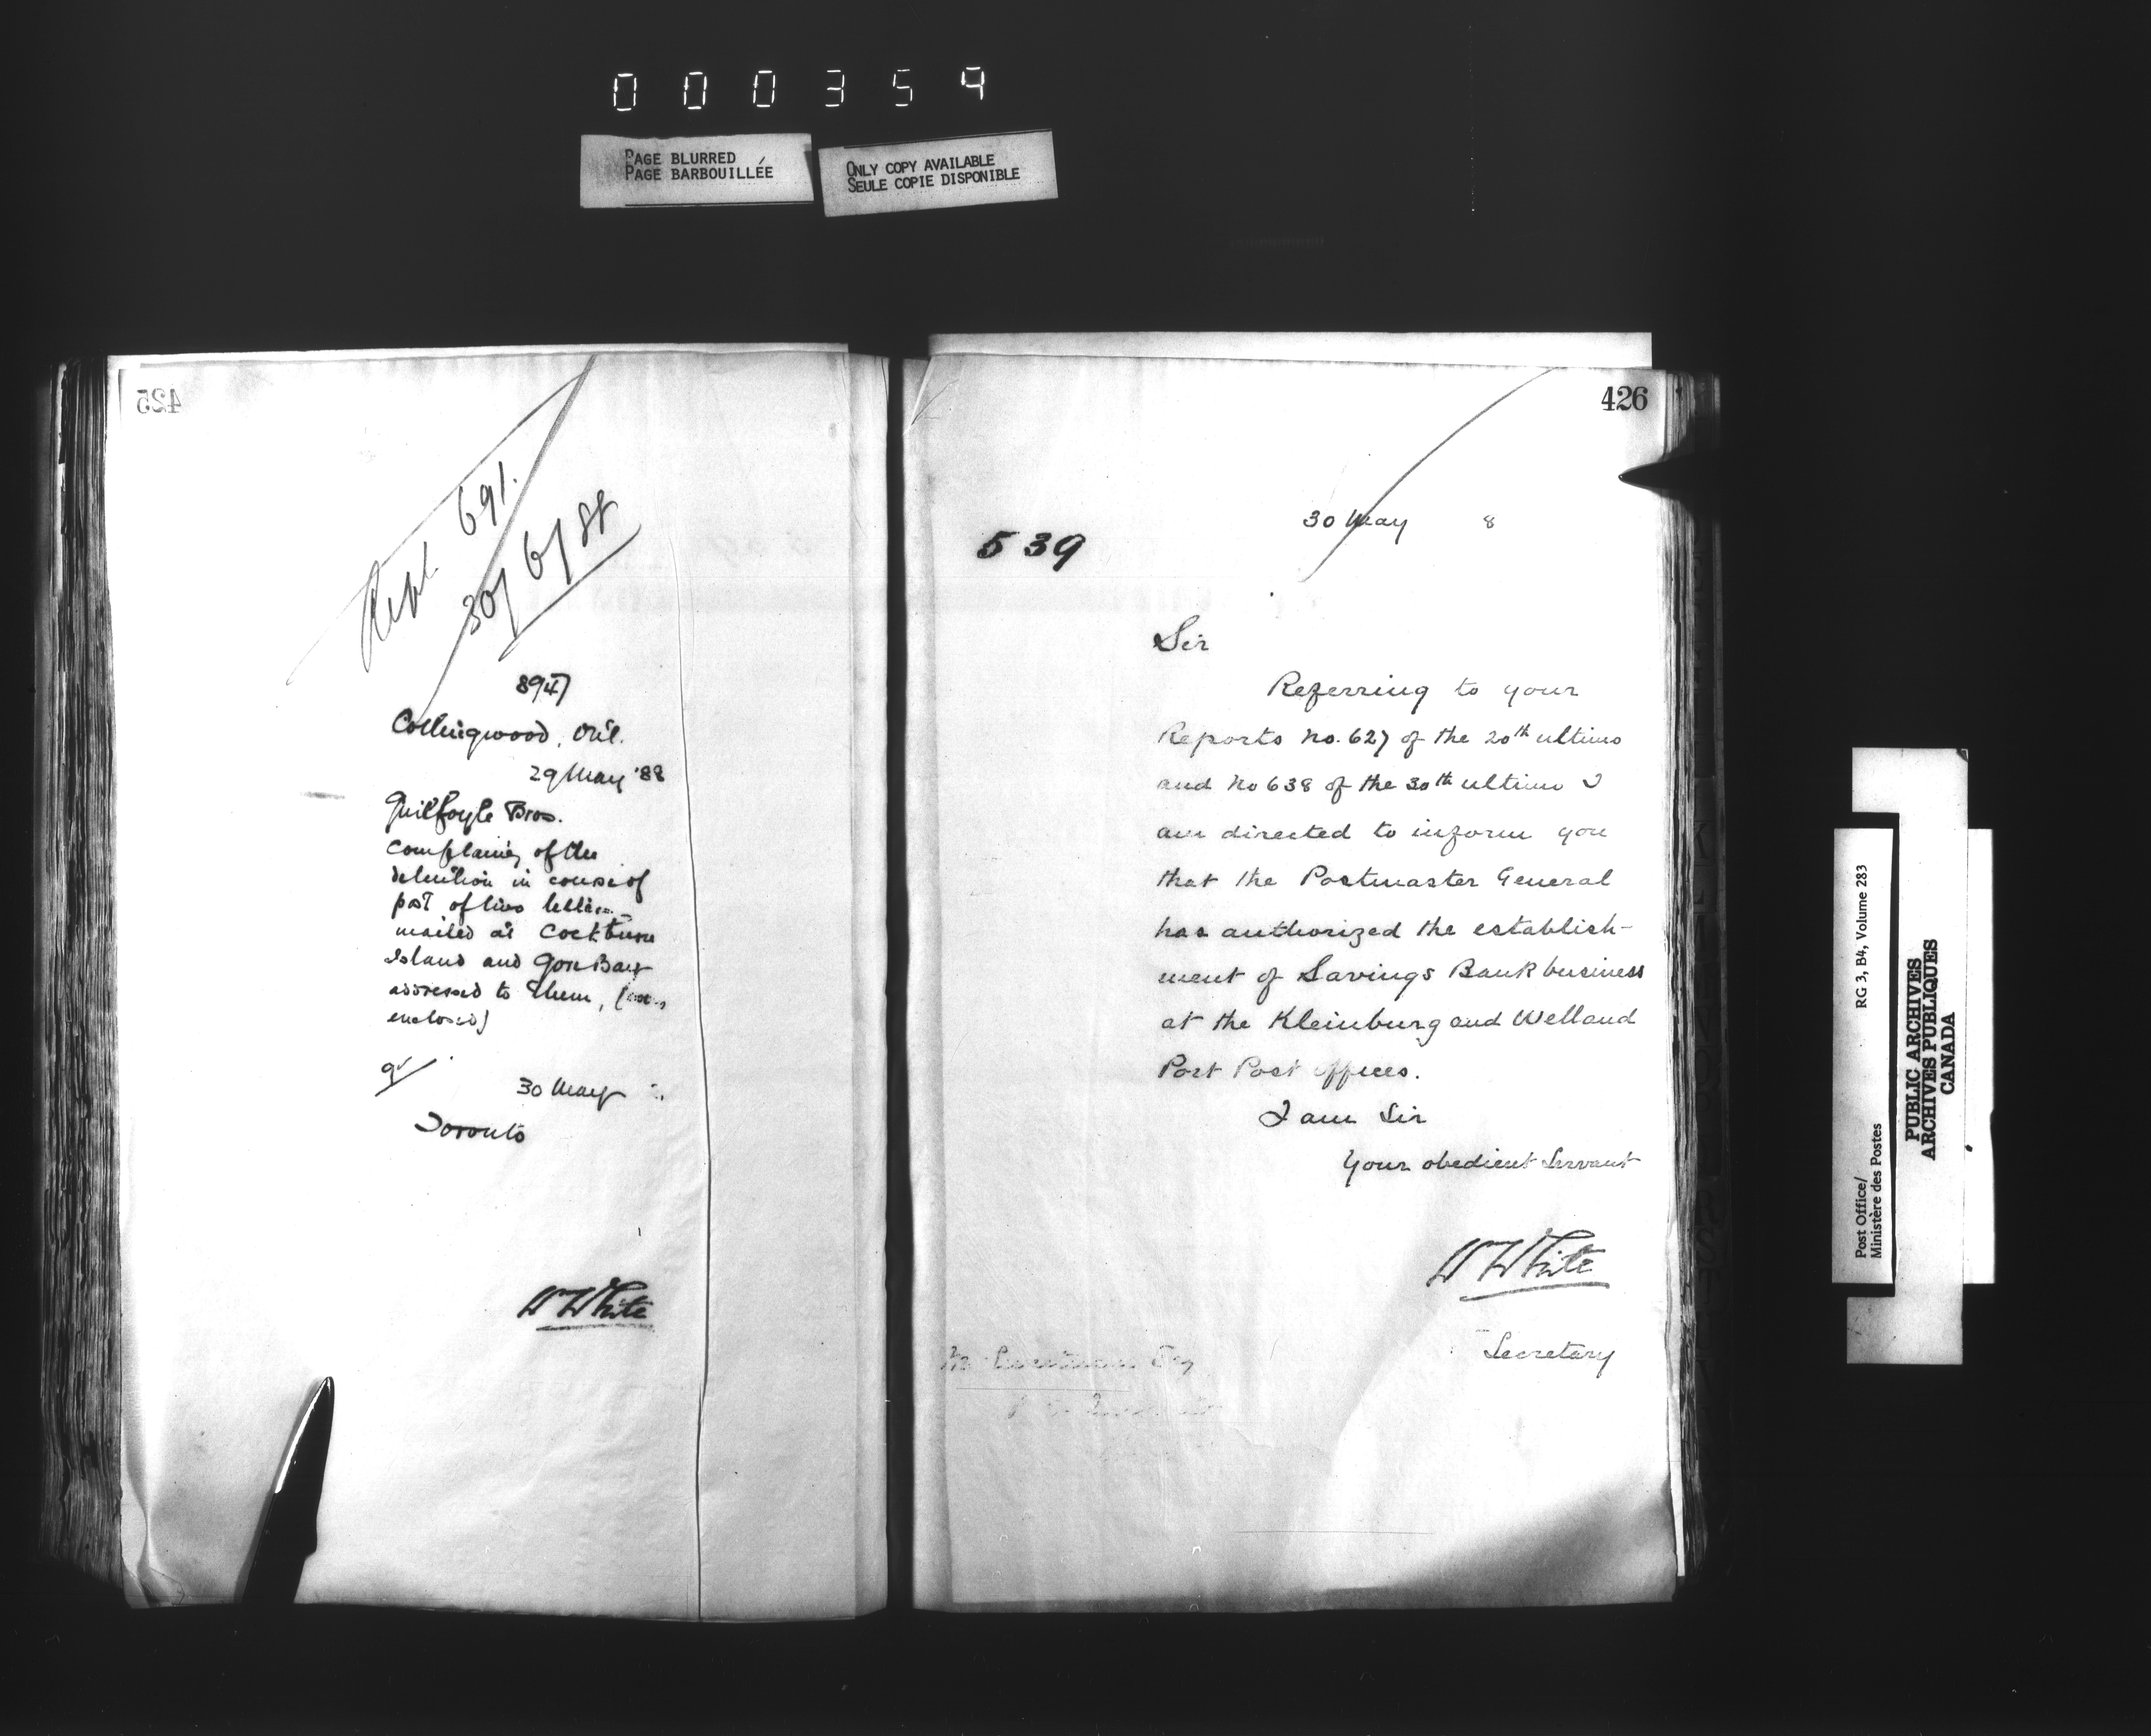 000359
PAGE BLURRED
PAGE BARBOUILLÉE
ONLY COPY AVAILABLE
SEULE COPIE DISPONIBLE
425
Rept. 691.
30/6/88
8947
Collingwood, Ont.
29 May '88
Guilfoyle Bros.
Complaing of the
detention in course of
post of two letters
mailed at Cockburn
Island and Gore Bay
addressed to them, (
enclosed)
30 May
Toronto
W White
426
30 May 8
539
Sir
Referring to your
Reports No. 627 of the 20th ultimo
and No 638 of the 30th ultimo I
am directed to inform you
that the Postmaster General
has authorized the establish-
ment of Savings Bank business
at the Kleinburg and Welland
Port Post offices.
I am Sir
Your obedient Servant
W White
Secretary
Esq
Post Office/
Ministère des Postes
RG 3, B4, Volume 283
PUBLIC ARCHIVES
ARCHIVES PUBLIQUES
CANADA